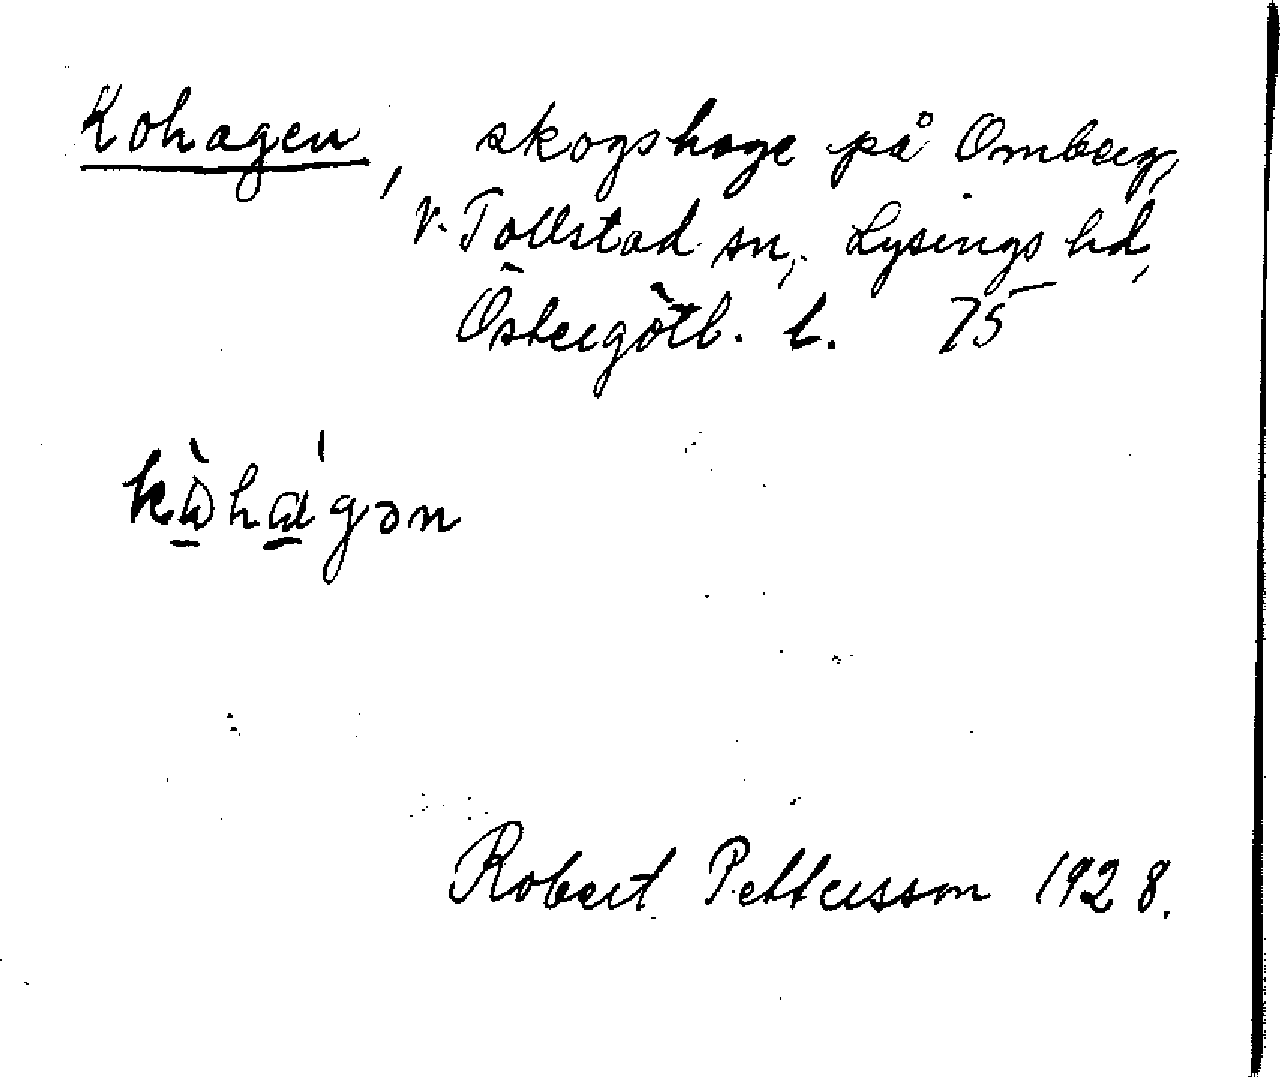 Kohagen, skogshage på Omberg,
V. Tollstad sn, Lysings hd,
Östergötl. l. 75
kòhá'gən
Robert Pettersson 1928.